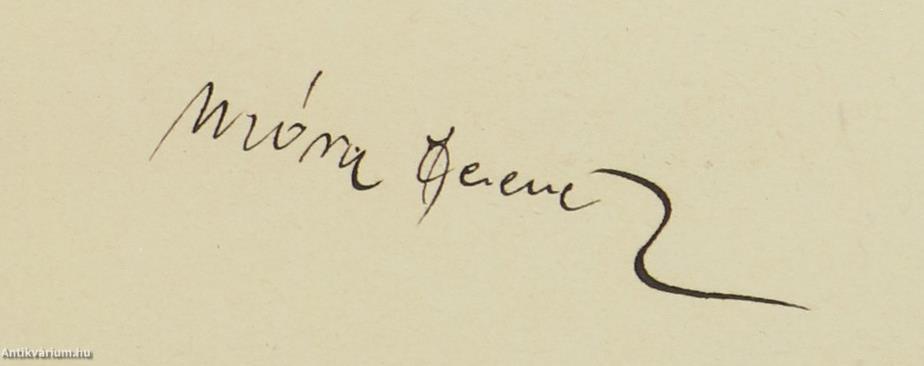 Móra Ferenc
Antikvárium.hu